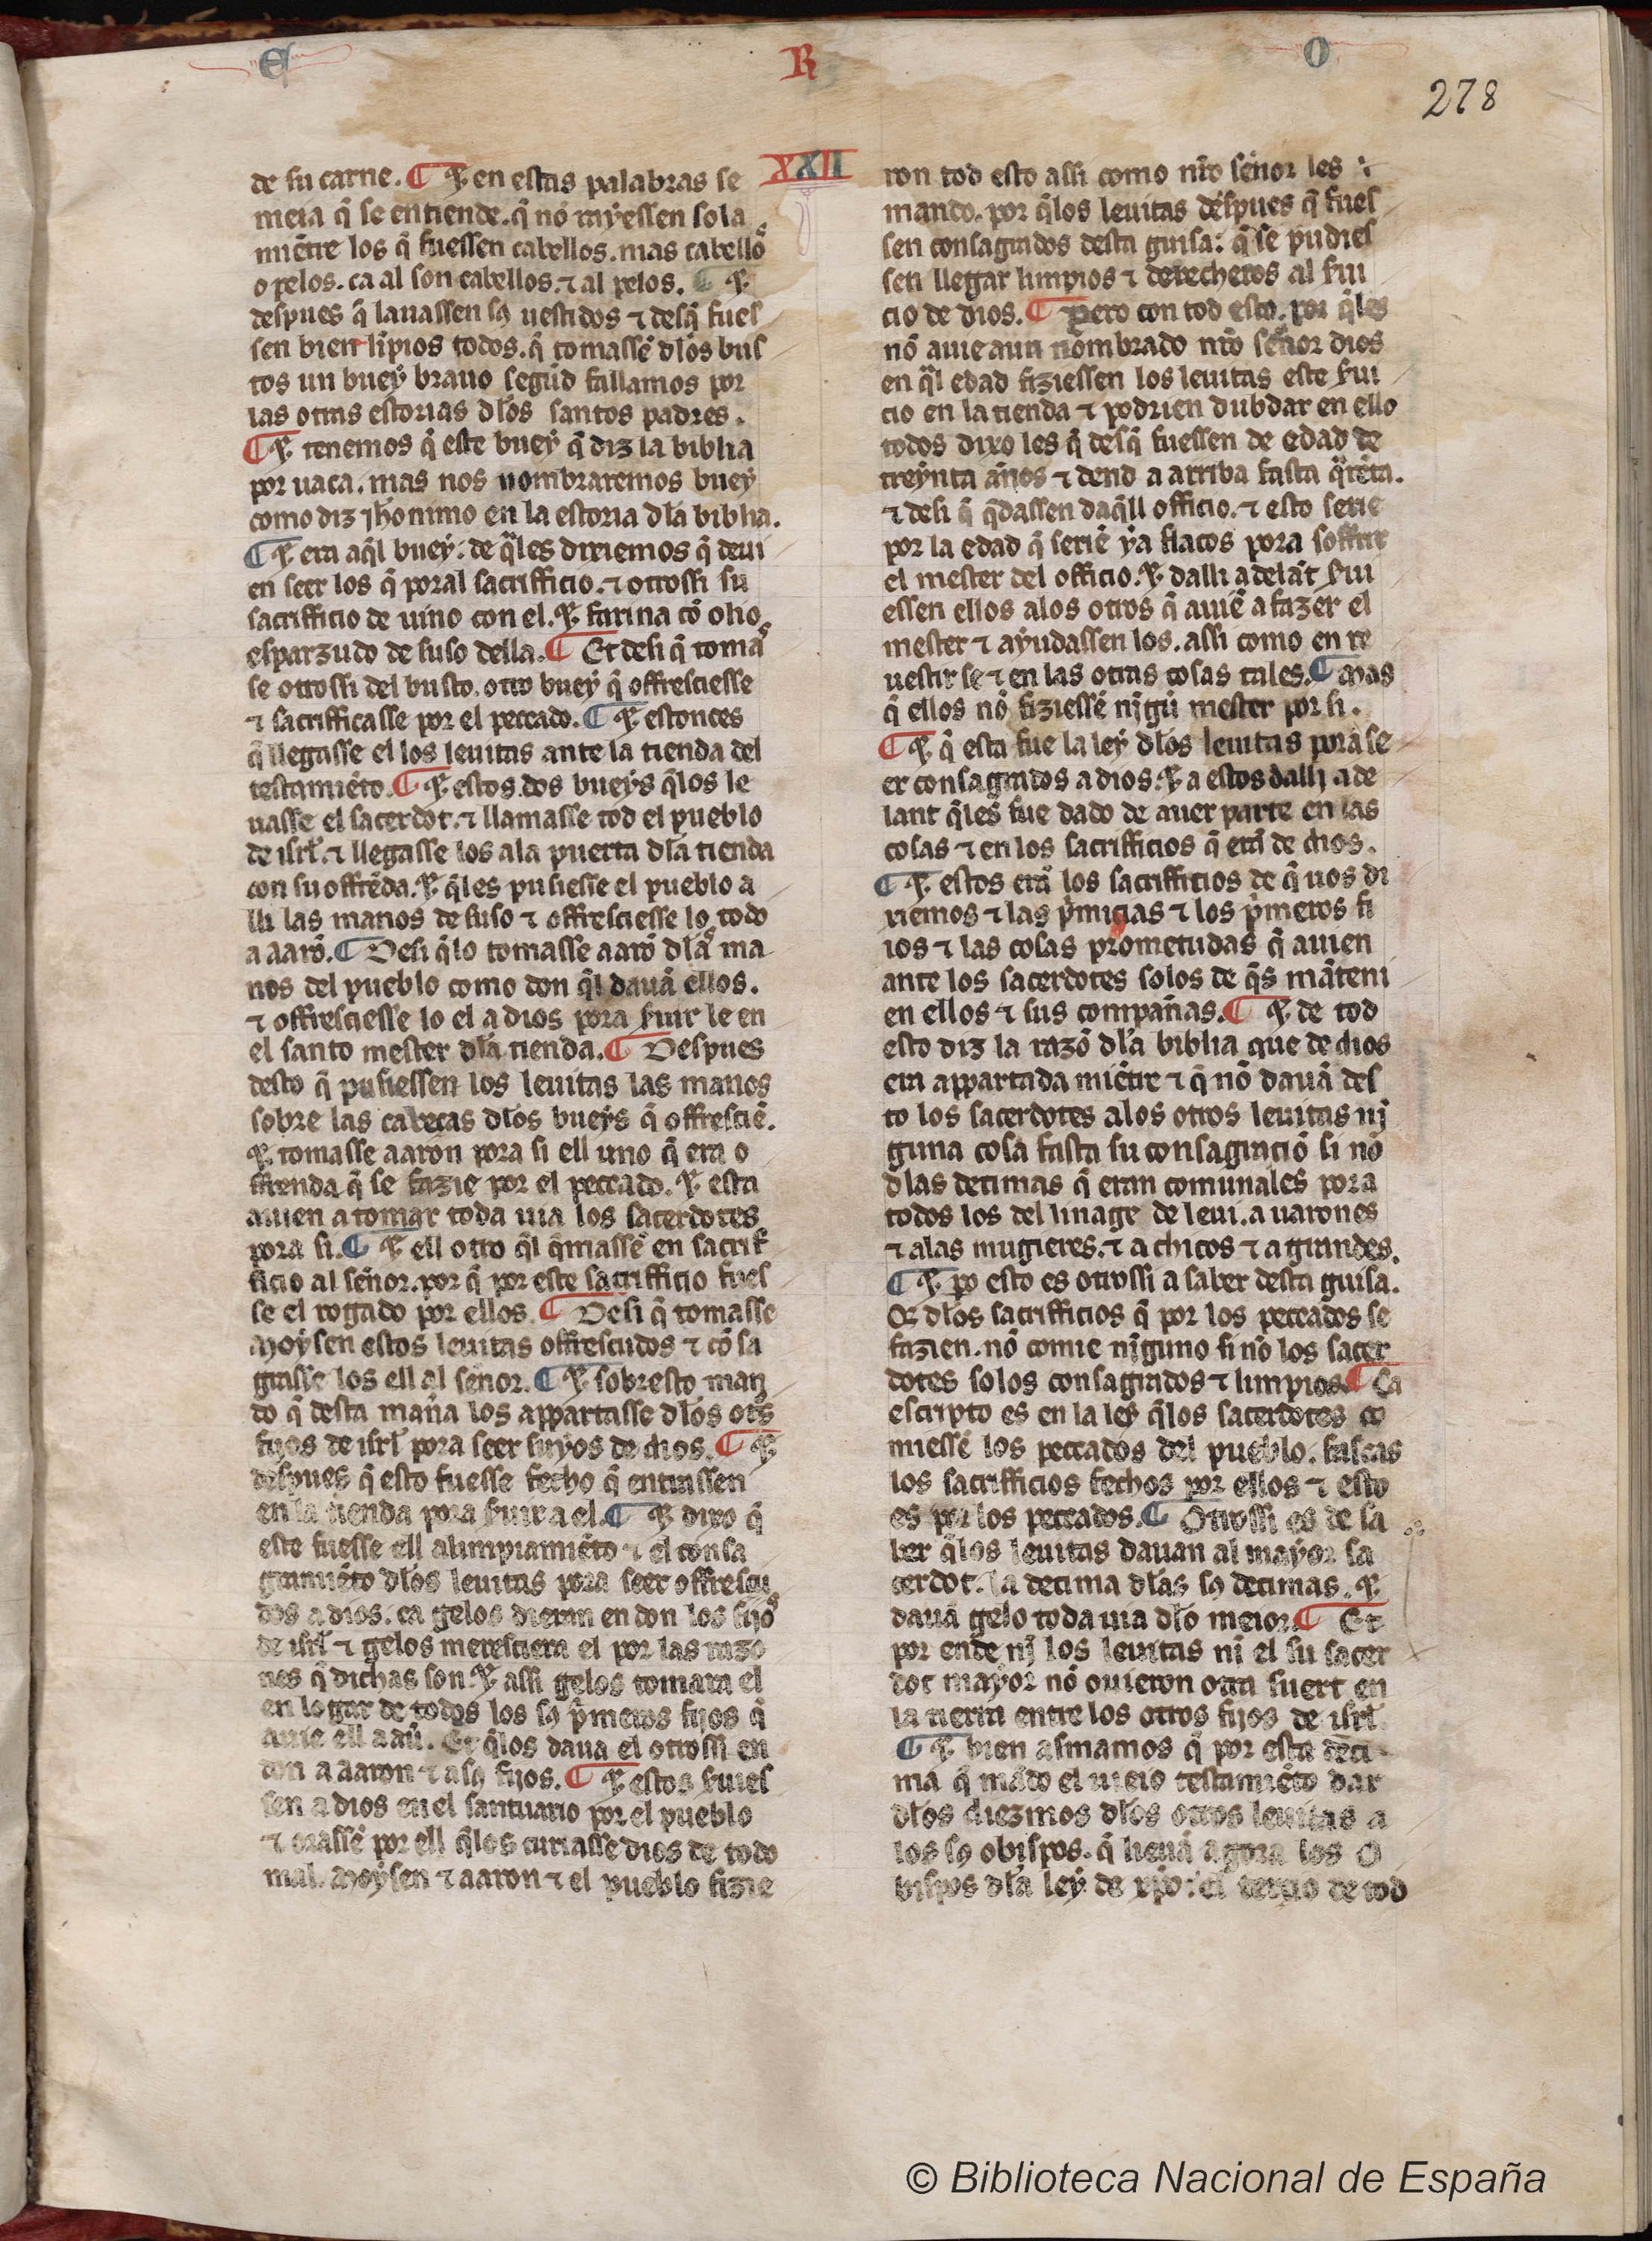 E
R
O
278
XXII
de su carne. ¶ Et en estas palabras se
meia q̃ se entiende. q̃ nõ myessen sola
miẽtre los q̃ fuessen cabellos. mas cabellos
o pelos. ca al son cabellos. ⁊ al pelos. ¶ Et
despues q̃ lauassen sꝯ uestidos ⁊ desq̃ fues
sen bien lĩpios todos. q̃ tomassẽ dlos bus
tos un buey brauo segũd fallamos por
las otras estorias dlos santos padres.
¶ Et tenemos q̃ este buey q̃ diz la biblia
por uaca. mas nos nombraremos buey
como diz jhonimo en la estoria dla biblia.
¶ Et era aq̃l buey. de q̃les dixiemos q̃ deui
en seer los q̃ poral sacrifficio. ⁊ otrossi su
sacrifficio de uino con el. Et farina cõ olio
esparzudo de suso della. ¶ Et desi q̃ toma
se otrossi del busto. otro buey q̃ offresciesse
⁊ sacrifficasse por el peccado. ¶ Et estonces
q̃ llegasse el los leuitas ante la tienda del
testamiẽto. ¶ Et estos dos bueys q̃los le
uasse el sacerdot. ⁊ llamasse tod el pueblo
de isrl̃. ⁊ llegasse los ala puerta dla tienda
con su offrẽda. Et q̃les pusiesse el pueblo a
lli las manos de suso ⁊ offresciesse los todo
a aarõ. ¶ Desi q̃lo tomasse aarõ dlas ma
nos del pueblo como don q̃l dauã ellos.
⁊ offresciesse lo el a dios pora suir le en
el santo mester dla tienda. ¶ Despues
desto q̃ pusiessen los leuitas las manos
sobre las cabeças dlos bueys q̃ offresciẽ.
Et tomasse aaron pora si ell uno q̃ era o
frenda q̃ se fazie por el peccado. Et esta
auien a tomar toda uia los sacerdotes
pora si. ¶ Et ell otro q̃l q̃massẽ en sacrif
ficio al señor. por q̃ por este sacrifficio fues
se el rogado por ellos. ¶ Desi q̃ tomasse
Moysen estos leuitas offrescudos ⁊ cõsa
grasse los ell al señor. ¶ Et sobresto man
do q̃ desta maña los appartasse dlos otr̃s
fijos de isrl̃ pora seer suyos de dios. ¶ Et
despues q̃ esto fuesse fecho q̃ entrassen
en la tienda pora suir a el. ¶ Et dixo q̃
este fuesse ell alimpiamiẽto ⁊ el consa
gramiẽto dlos leuitas pora seer offrescu
dos a dios. ca gelos dieran en don los fijos
de isrl̃ ⁊ gelos meresciera el por las razo
nes q̃ dichas son. Et assi gelos tomara el
en logar de todos los sꝯ p̃meros fijos q̃
auie ell a aũ. Et q̃los daua el otrossi en
don a aaron ⁊ a sꝯ fijos. ¶ Et estos suies
sen a dios en el santuario por el pueblo
⁊ orassẽ por ell q̃los curiasse dios de todo
mal. Moysen ⁊ aaron ⁊ el pueblo fizie
ron tod esto assi como nr̃o señor les
mando. por q̃los leuitas despues q̃ fues
sen consagrados desta guisa: q̃ se pudies
sen llegar limpios ⁊ derecheros al sui
cio de dios. ¶ Pero con tod esto. por q̃les
nõ auie aun nombrado nr̃o señor dios
en q̃l edad fiziessen los leuitas este sui
cio en la tienda ⁊ podrien dubdar en ello
todos dixo les q̃ desq̃ fuessen de edad de
treynta años ⁊ dend a arriba fasta q̃rẽta.
⁊ desi q̃ q̃dassen daq̃ll officio. ⁊ esto serie
por la edad q̃ seriẽ ya flacos pora soffrir
el mester del officio. Et dalli adelãt sui
essen ellos alos otros q̃ auiẽ a fazer el
mester ⁊ ayudassen los. assi como en re
uestir se ⁊ en las otras cosas tales. ¶ Mas
q̃ ellos nõ fiziessẽ nĩgũ mester por si.
¶ Et q̃ esta fue la ley dlos leuitas pora se
er consagrados a dios. Et a estos dalli ade
lant q̃les fue dado de auer parte en las
cosas ⁊ en los sacrifficios q̃ erã de dios.
¶ Et estos erã los sacrifficios de q̃ uos di
xiemos ⁊ las p̃micias ⁊ los p̃meros fi
ios ⁊ las cosas prometudas q̃ auien
ante los sacerdotes solos de q̃s mãteni
en ellos ⁊ sus compañas. ¶ Et de tod
esto diz la razõ dla biblia que de dios
era appartada miẽtre ⁊ q̃ nõ dauã des
to los sacerdotes alos otros leuitas nĩ
guna cosa fasta su consagraciõ si nõ
dlas decimas q̃ eran comunales pora
todos los del linage de leui. a uarones
⁊ alas mugieres. ⁊ a chicos ⁊ a grandes.
¶ Et po esto es otrossi a saber desta guisa.
Or dlos sacrifficios q̃ por los peccados se
fazien. nõ comie nĩguno si nõ los sacer
dotes solos consagrados ⁊ limpios. ¶ Ca
escripto es en la ley q̃los sacerdotes co
miessẽ los peccados del pueblo. fascas
los sacrifficios fechos por ellos ⁊ esto
es por los peccados. ¶ Otrossi es de sa
ber q̃los leuitas dauan al mayor sa
cerdot. la decima dlas sꝯ decimas. Et
dauã gelo toda uia dlo meior. ¶ Et
por ende nĩ los leuitas nĩ el su sacer
dot mayor nõ ouieron otra suert en
la tierra entre los otros fijos de isrl̃.
¶ Et bien asmamos q̃ por esta deci
ma q̃ mãdo el uieio testamiẽto dar
dlos diezmos dlos otros leuitas a
los sꝯ obispos. q̃ lieuã agora los o
bispos dla ley de xp̃o: el tercio de tod
© Biblioteca Nacional de España